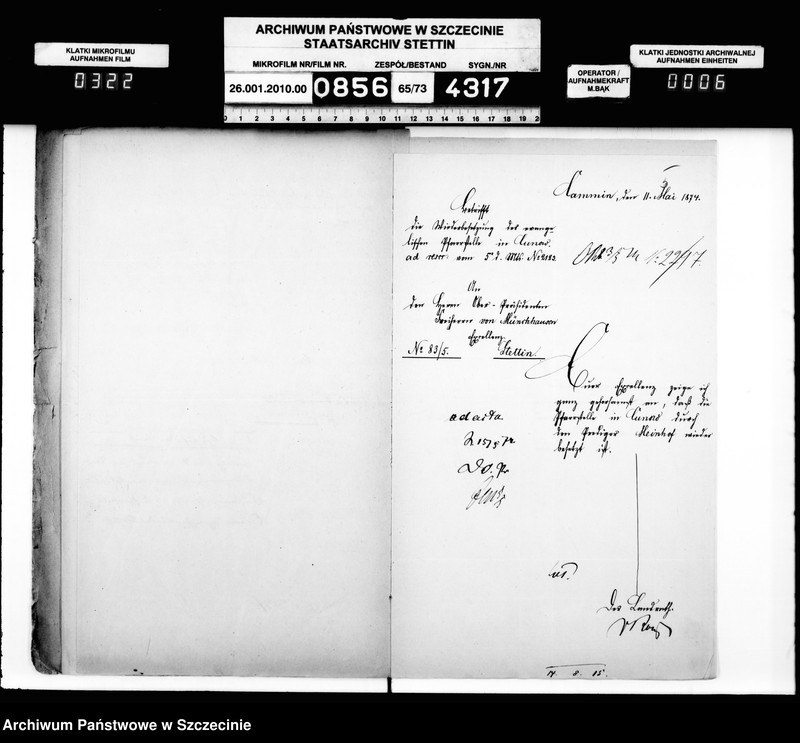 ARCHIWUM PAŃSTWOWE W SZCZECINIE
STAATSARCHIV STETTIN
KLATKI MIKROFILMU
AUFNAHMEN FILM
0322
MIKROFILM NR/FILM NR. ZESPÓŁ/BESTAND SYGN./NR
26.001.2010.00 0856 65/73 4317
OPERATOR /
AUFNAHMEKRAFT
M.BĄK
KLATKI JEDNOSTKI ARCHIWALNEJ
AUFNAHMEN EINHEITEN
0006
0 1 2 3 4 5 6 7 8 9 10 11 12 13 14 15 16 17 18 19
Cammin, den 11. Mai 1874.
Betrifft
die Wiederbesetzung der evange-
lischen Pfarrstelle in
ad rescr. vom 5 d. Mts No 2183.
An
den Herrn Ober-Präsidenten
Freiherrn von Münchhausen
Excellenz
No 83/5. Stettin.
Euer Excellenz zeige ich
ganz gehorsamst an, daß die
Pfarrstelle in durch
den Prediger Meinhof wieder
besetzt ist.
ad acta.
Der Landrath.
14. 8. 15.
Archiwum Państwowe w Szczecinie